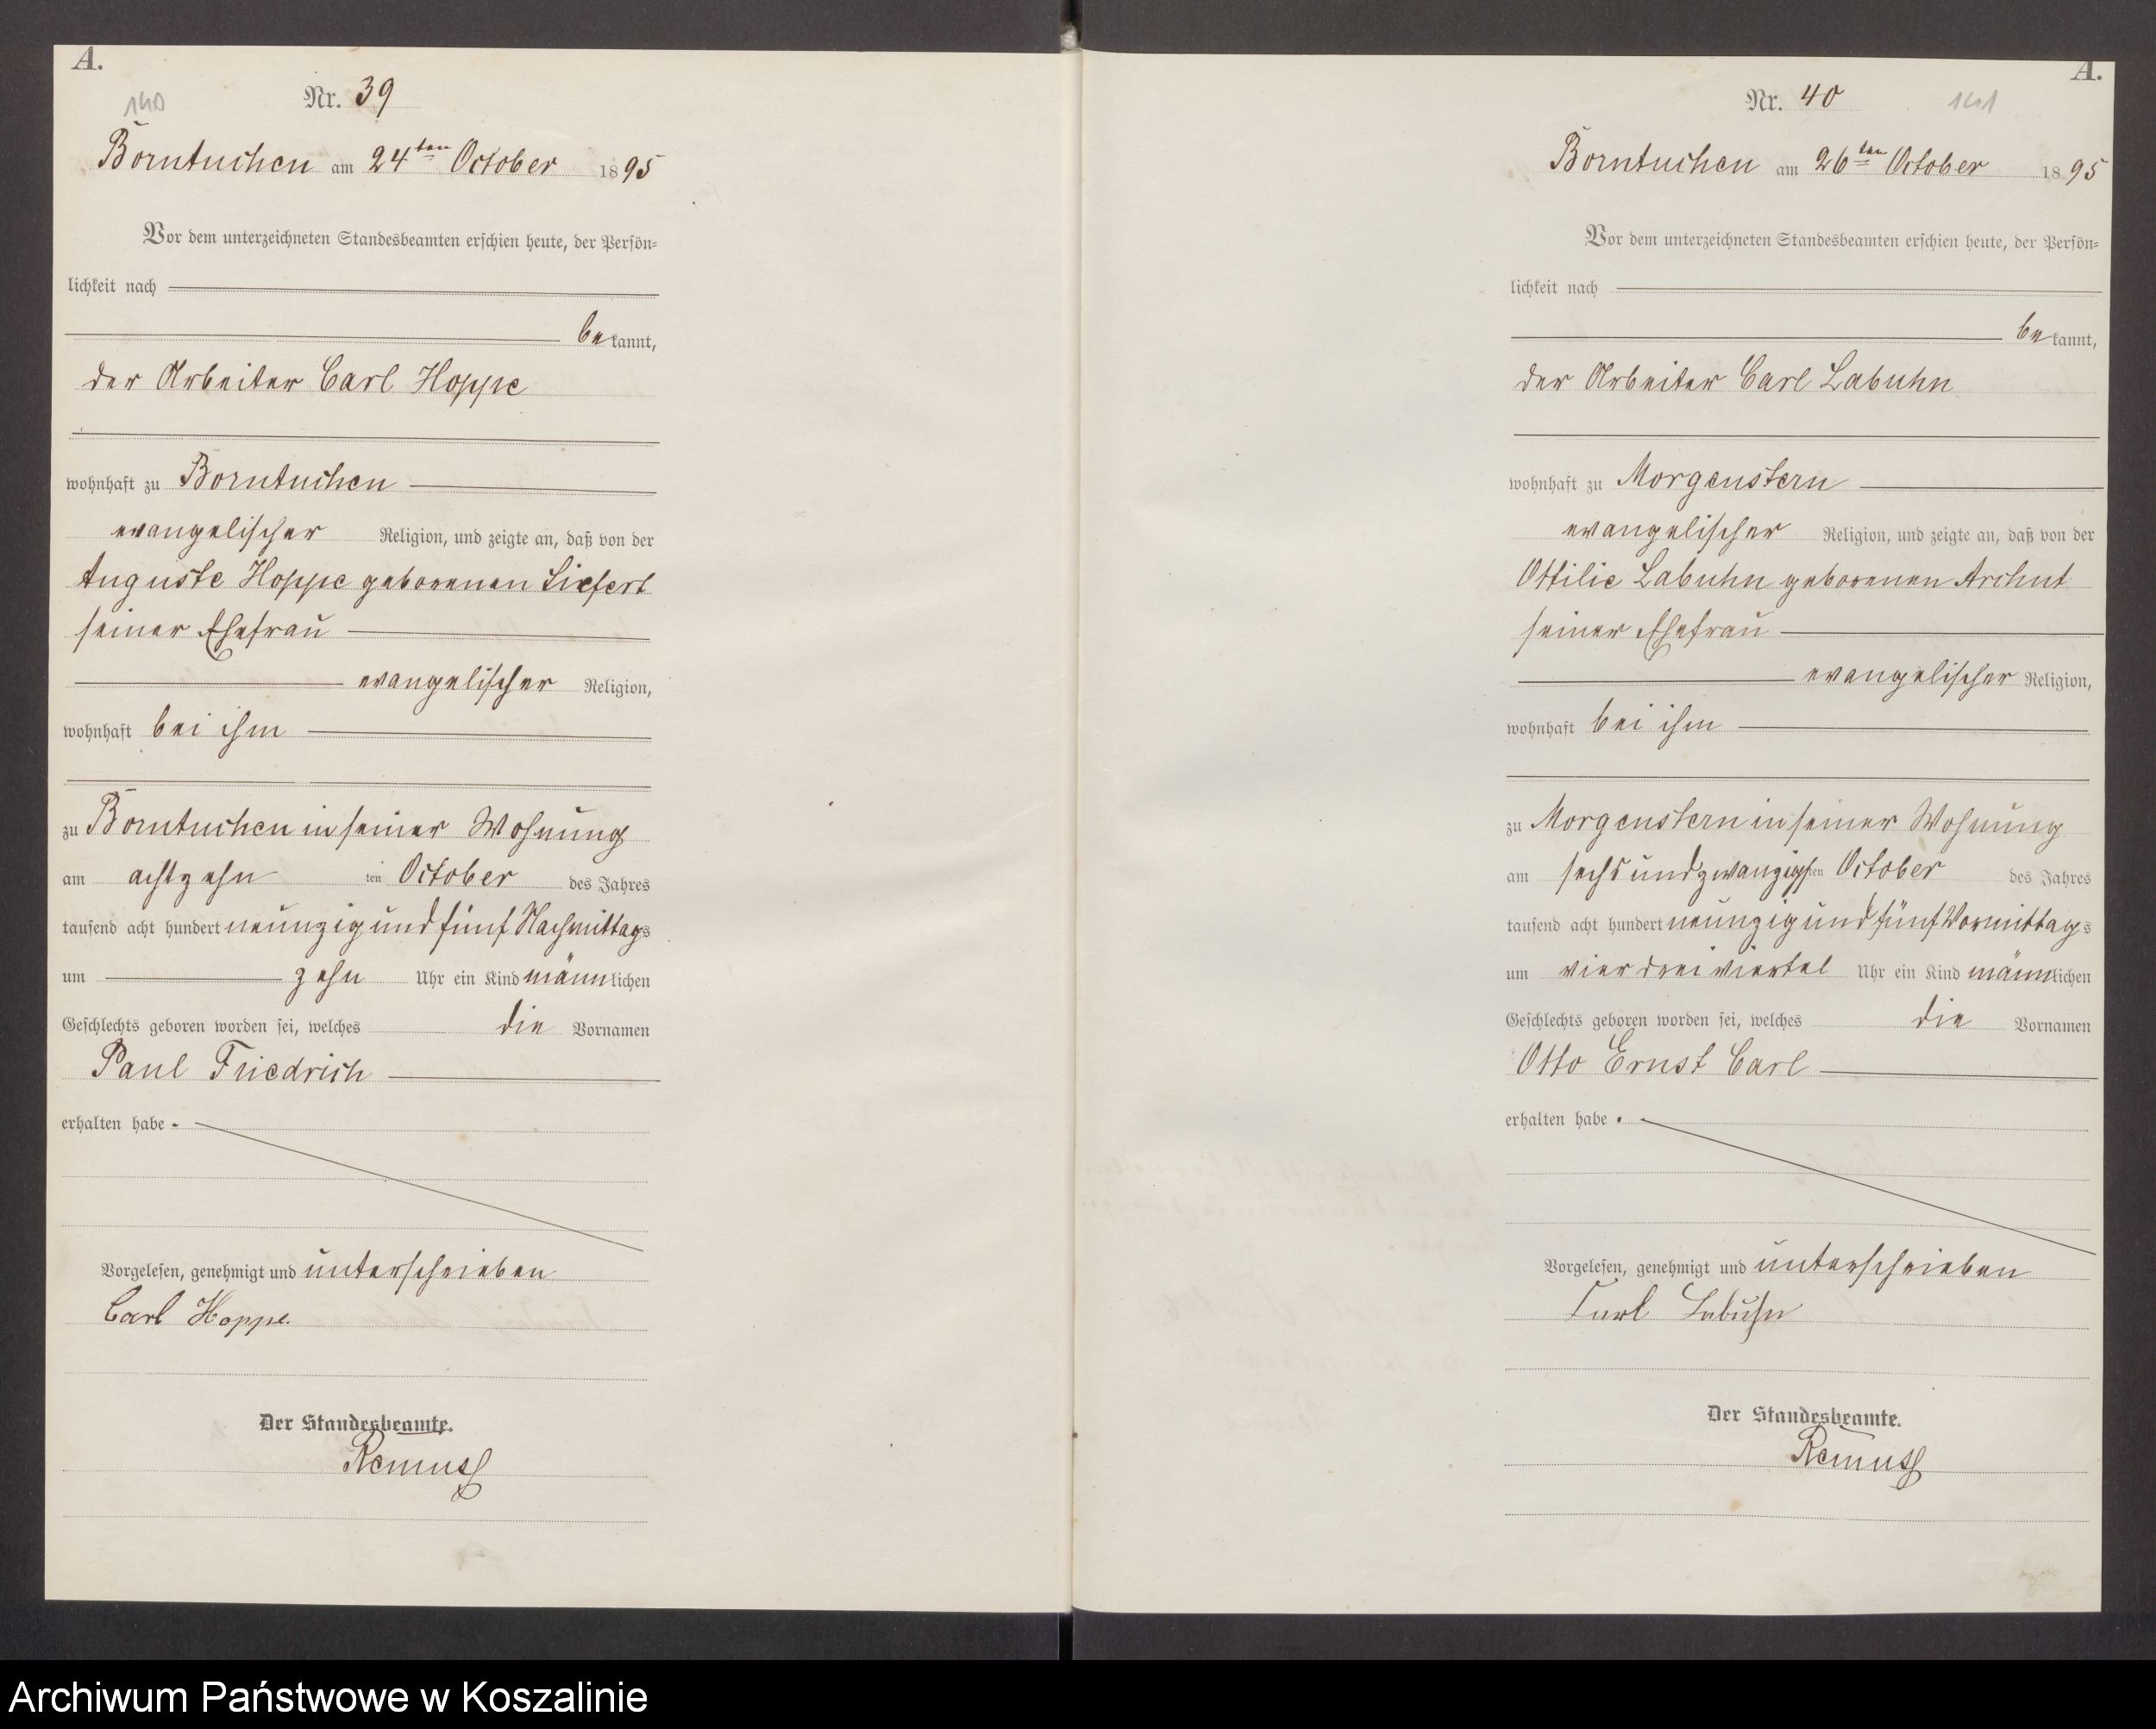 A.
140
Nr. 39
Borntuchen am 24ten October 1895
Vor dem unterzeichneten Standesbeamten erschien heute, der Persön-
lichkeit nach
bekannt,
der Arbeiter Carl Hoppe
wohnhaft zu Borntuchen
evangelischer Religion, und zeigte an, daß von der
Auguste Hoppe geborenen Siefert
seiner Ehefrau
evangelischer Religion,
wohnhaft bei ihm
zu Borntuchen in seiner Wohnung
am achtzehn ten October des Jahres
tausend acht hundert neunzig und fünf Nachmittags
um zehn Uhr ein Kind männlichen
Geschlechts geboren worden sei, welches die Vornamen
Paul Friedrich
erhalten habe.
Vorgelesen, genehmigt und unterschrieben
Carl Hoppe.
Der Standesbeamte.
Remus
A.
141
Nr. 40
Borntuchen am 26ten October 1895
Vor dem unterzeichneten Standesbeamten erschien heute, der Persön-
lichkeit nach
bekannt,
der Arbeiter Carl Labuhn
wohnhaft zu Morgenstern
evangelischer Religion, und zeigte an, daß von der
Ottilie Labuhn geborenen Archut
seiner Ehefrau
evangelischer Religion,
wohnhaft bei ihm
zu Morgenstern in seiner Wohnung
am sechsundzwanzigsten October des Jahres
tausend acht hundert neunzig und fünf Vormittags
um vier drei viertel Uhr ein Kind männlichen
Geschlechts geboren worden sei, welches die Vornamen
Otto Ernst Carl
erhalten habe.
Vorgelesen, genehmigt und unterschrieben
Carl Labuhn
Der Standesbeamte.
Remus
Archiwum Państwowe w Koszalinie